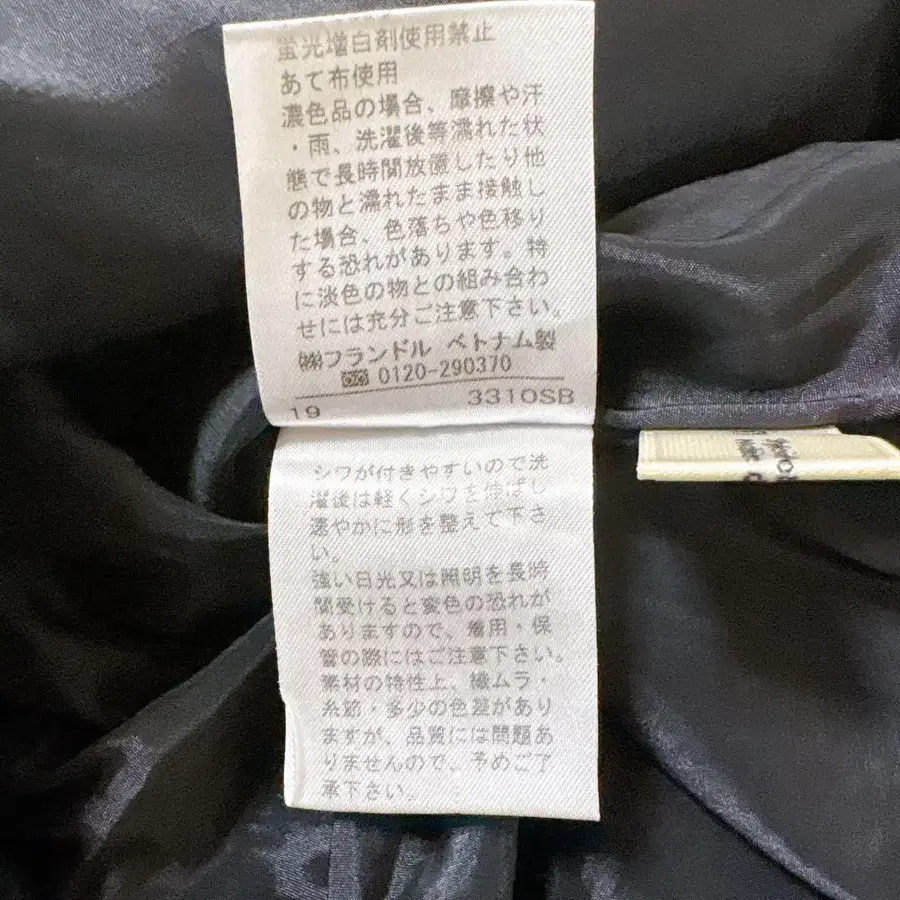 蛍光増白剤使用禁止
あて布使用
濃色品の場合、摩擦や汗
・雨、洗濯後等濡れた状
態で長時間放置したり他
の物と濡れたまま接触し
た場合、色落ちや色移り
する恐れがあります。特
に淡色の物との組み合わ
せには充分ご注意下さい。
㈱フランドル ベトナム製
0120-290370
19 3310SB
シワが付きやすいので洗
濯後は軽くシワを伸ばし
速やかに形を整えて下さ
い。
強い日光又は照明を長時
間受けると変色の恐れが
ありますので、着用・保
管の際にはご注意下さい。
素材の特性上、織ムラ・
糸節・多少の色差があり
ますが、品質には問題あ
りませんので、予めご了
承下さい。